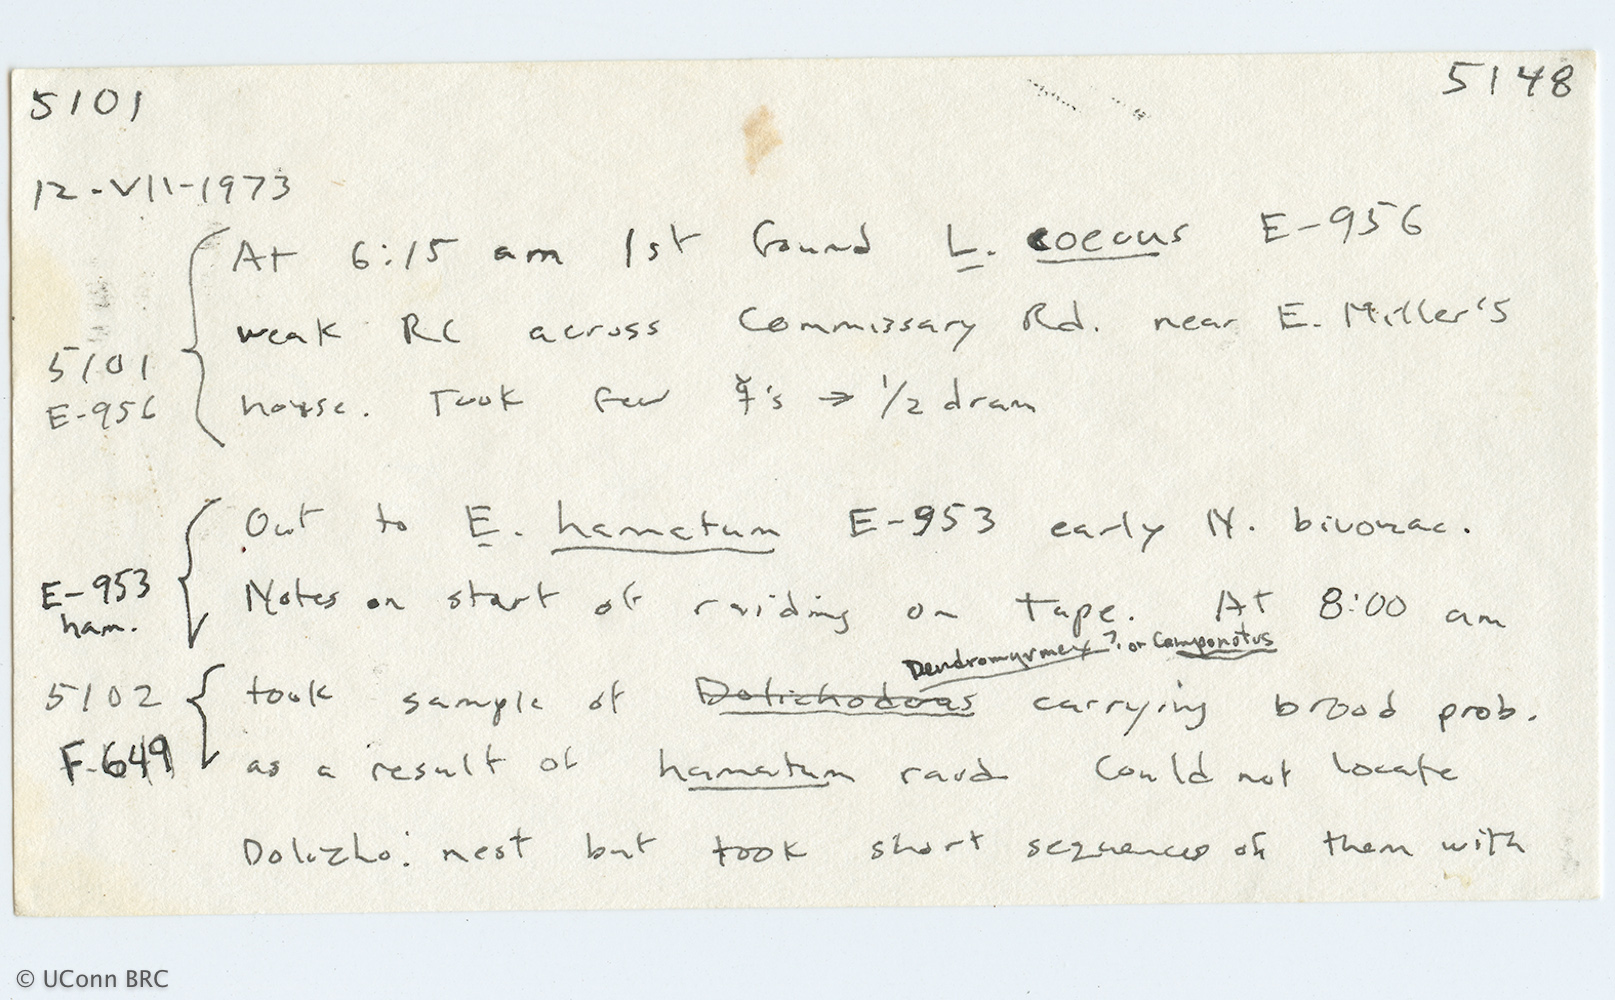 5101
5148
12-VII-1973
At 6:15 am 1st found L. coecus E-956
weak RC across Commissary Rd. near E. Miller's
5101
E-956
house. Took few ☿'s → 1/2 dram
Out to E. hamatum E-953 early N. bivouac.
E-953
ham.
Notes on start of raiding on tape. At 8:00 am
Dendromyrmex?, or Camponotus
5102
took sample of Dolichoderus carrying brood prob.
F-649
as a result of hamatum raid Could not locate
Dolicho: nest but took short sequences of them with
© UConn BRC